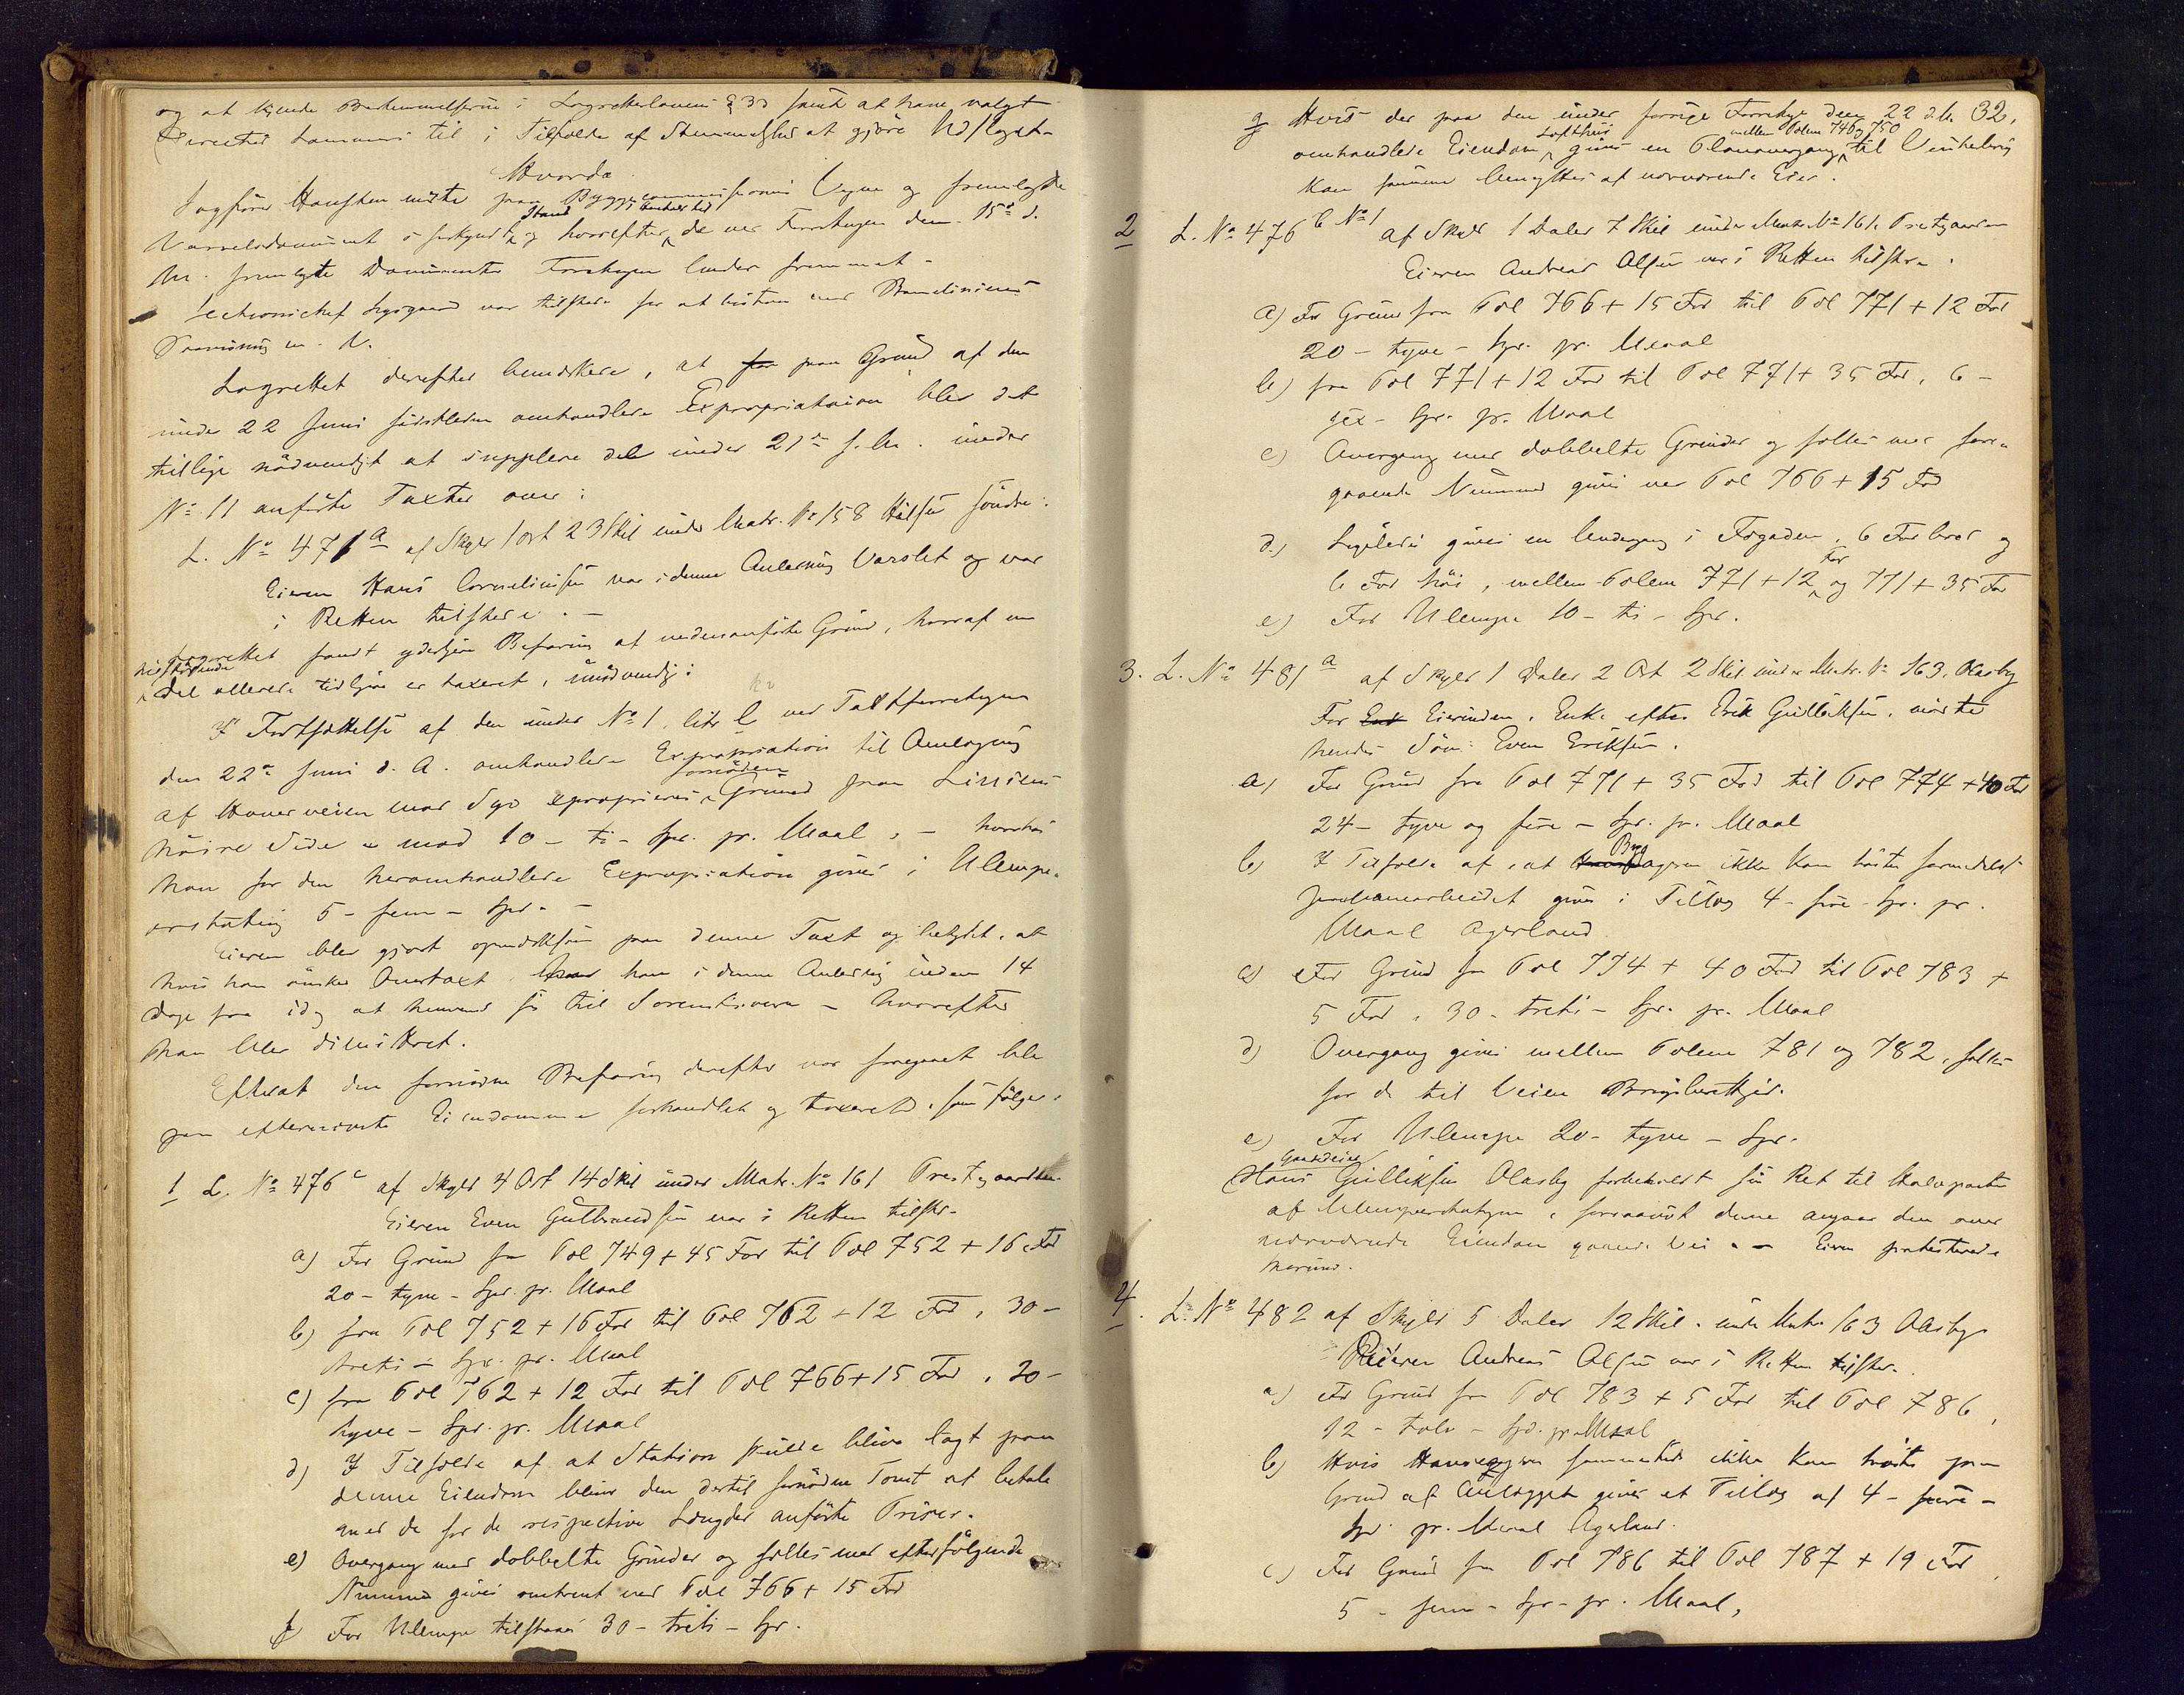 og at kjende Bestemmelserne i Lagrettelovens § 33 samt at have valgt
til i Tilfælde af Stemmelighed at gjöre Udslaget.
Hvorda
Sagförer Hansken mödte paa Byggecommissionens Vegne og fremlagde
Varselsdocument i forkyndt Stand og hvorefter i Anledning de ved Forretningen den 15de d.
M. fremlagte Documenter Forretningen lindes fremmet.
Sectionschef Lysgaard var tilstede for at bistaa med Banelinjens
Paavisning m. V.
Lagrettet derefter bemærkede, at paa Grund af den
under 22 Juni sidstleden omhandlede Expropriation blev det
tillige nödvendigt at supplere det under 21de s. M. under
No 11 anförte Taxter over:
L. No 471 a af Skyld 1 Ort 23 Skil under Matr. No 158 söndre:
Eieren Hans Corneliussen var i denne Anledning Varslet og var
i Retten tilstede. -
Lagrettet fandt yderligere Befaring af nedenanförte Grund, hvoraf en
hosliggende Del allerede tidligere er taxeret, unödvendig:
I Fortsættelse af den under No 1, litr b ved Taxtforretningen
den 22de Juni d. A. omhandlede Expropriation til Omlægning
af Hovedveien mod Syd exproprieres fornöden Grund paa Liniens
höire Side mod 10 - ti - Spd. pr. Maal, - hvorhos
han for den heromhandlede Expropriation gives i Ulempe-
erstatning 5 - fem - Spd. -
Eieren blev gjort opmærksom paa denne Taxt og betydet, at
hvis han önsker Overtaxt, har han i denne Anledning inden 14
Dage fra idag at henvende sig til Sorenskriveren - hvorefter
han blev dimitteret.
Efterat den fornödne Befaring derefter var foregaaet blev
paa efternævnte Eiendomme forhandlet og taxeret, som fölger:
1 L. No 476 c af Skyld 4 Ort 14 Skil under Matr. No 161 Prestgaarden
Eieren Even Gulbrandsen var i Retten tilstede
a) For Grund fra Pæl 749 + 45 Fod til Pæl 752 + 16 Fod
20 - tyve - Spd. pr. Maal
b) fra Pæl 752 + 16 Fod til Pæl 762 + 12 Fod, 30 -
treti - Spd. pr. Maal
c) fra Pæl 762 + 12 Fod til Pæl 766 + 15 Fod, 20 -
tyve - Spd. pr. Maal
d) I Tilfælde af at Station skulde blive lagt paa
denne Eiendom bliver den dertil fornödne Tomt at betale
med de for de respective Længder anförte Priser.
e) Overgang med dobbelte Grinder og fælles med efterfölgende
Nummer gives omtrent ved Pæl 766 + 15 Fod
f) For Ulempe tilstaaes 30 - treti - Spd.
32.
g Hvis der paa den under forrige Forretning den 22 d. M.
omhandlede Eiendom Lofthus gives en Planovergang mellem Pælene 746 og 750 til
kan samme benyttes af nærværende Eier.
2 L. No 476 b No 1 af Skyld 1 Daler 7 Skil under Matr. No 161. Prestgaarden
Eieren Andreas Olsen var i Retten tilstede.
a) For Grund fra Pæl 766 + 15 Fod til Pæl 771 + 12 Fod
20 - tyve - Spd. pr. Maal
b) fra Pæl 771 + 12 Fod til Pæl 771 + 35 Fod, 6 -
sex - Spd. pr. Maal
c) Overgang med dobbelte Grinder og fælles med fore-
gaaende Nummer gives ved Pæl 766 + 15 Fod
d.) Ligeledes gives en Undergang i Forgaden, 6 Fod bred og
6 Fod höi, mellem Pælene 771 + 12 Fod og 771 + 35 Fod
e) For Ulempe 10 - ti - Spd.
3. L. No 481 a af Skyld 1 Daler 2 Ort 2 Skil under Matr. No 163, Olasby
For Eierinden, Enke efter Erik Gulliksen, mödte
hendes Sön: Even Eriksen.
a) For Grund fra Pæl 771 + 35 Fod til Pæl 774 + 40 Fod
24 - tyve og fire - Spd. pr. Maal
b) I Tilfælde af, at Bygageren ikke kan höstes formedelst
Jernbanearbeidet gives i Tillæg 4 - fire - Spd. pr.
Maal Agerland
c) For Grund fra Pæl 774 + 40 Fod til Pæl 783 +
5 Fod, 30 - treti - Spd. pr. Maal
d) Overgang gives mellem Pælene 781 og 782, fælles
for de til Veien Brugsberettigede.
e) For Ulempe 20 - tyve - Spd.
Gaardeier
Hans Gulliksen Olasby forbeholdt sin Ret til Halvparten
af Ulempeerstatningen, forsaavidt denne angaar den over
nærværende Eiendom gaaende Vei. - Eieren protesterede
herimod.
4. L. No 482 af Skyld 5 Daler 12 Skil. under Matr. 163 Olasby
Eieren Andreas Olsen var i Retten tilstede.
a) For Grund fra Pæl 783 + 5 Fod til Pæl 786,
12 - tolv - Spd. pr. Maal
b) Hvis Havreageren sammesteds ikke kan höstes paa
Grund af Anlægget gives et Tillæg af 4 - fire -
Spd. pr. Maal Agerland.
c) For Grund fra Pæl 786 til Pæl 787 + 19 Fod,
5 - fem - Spd. pr. Maal,